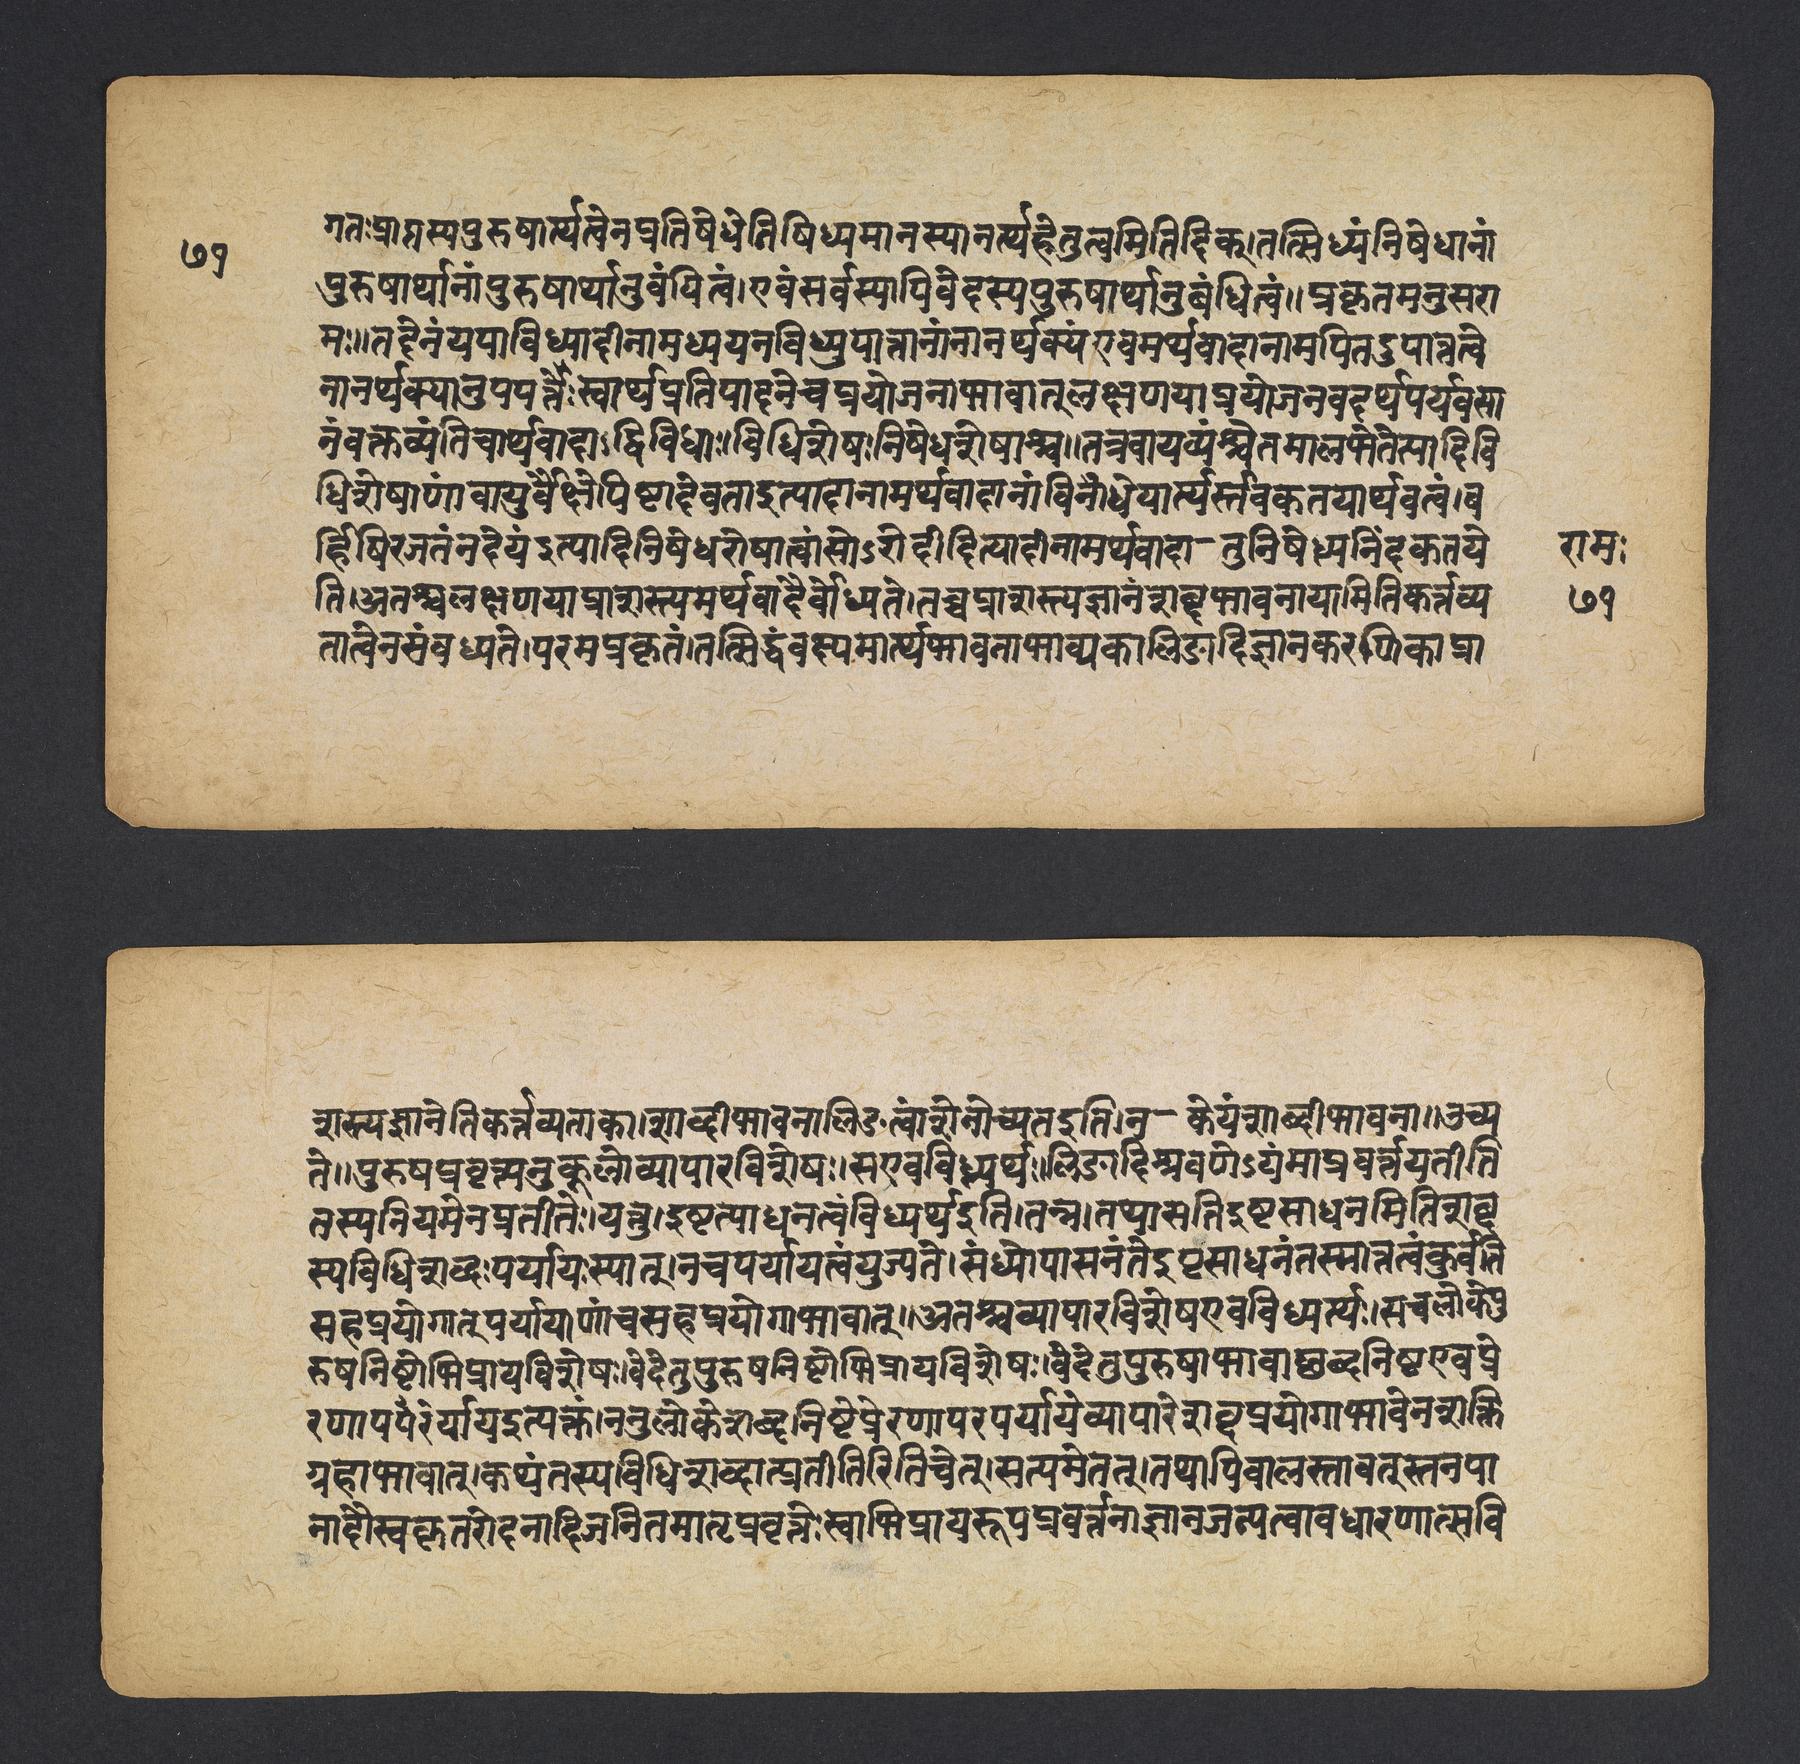 ७१
गतःप्राप्तस्यपुरुषार्त्थत्वेनप्रतिषेधेतिषिध्यमानस्यानर्त्थहेतुत्वमितिदिक्।तत्सिध्यंनिषेधानां
पुरुषार्थानांपुरुषार्थानुबंधित्वं।एवंसर्वस्यापिवेदस्यपुरुषार्थानुबंधित्वं॥प्रकृतमनुसरा
मः॥तदेनंयथाविध्यादीनामध्ययनविध्युपात्तानांनानर्थक्यंएवमर्थवादानामपितदुपात्तत्वे
नानर्थक्यानुपपर्त्तेःस्वार्थप्रतिपादनेचप्रयोजनाभावात्लक्षणयाप्रयोजनवदर्थपर्यवसा
नंवक्तव्यंतेचार्थवादाःद्विविधाः।विधिशेषःनिषेधशेषाश्च॥तत्रवायव्यंश्वेतमालभेतेत्यादिवि
धिशेषाणांवायुर्वैक्षेपिष्टादेवताइत्यादानामर्थवादानांविनांधेयार्त्थस्तवकतयार्थवत्वं।ब
र्हिषिरजतंनदेयंइत्यादिनिषेधशेषात्वांसोऽरोदीदित्यादीनामर्थवादा-तुनिषेध्यनिंदकतये
राम:
ति।अतश्चलक्षणयाप्राशस्त्यमर्थवादैर्बोध्यते।तच्चप्राशस्त्यज्ञानंशब्दभावनायामितिकर्त्तव्य
७१
तात्वेनसंबध्यते।परमप्रकृतं।तत्सिद्धंवक्ष्यमार्त्थभावनाभाव्यकालिङादिज्ञानकरणिकाप्रा
शस्त्यज्ञानेतिकर्त्तव्यताका।शाब्दीभावनालिङत्वांशेनोच्यतइति।न-केयंशाब्दीभावना॥उच्य
ते॥पुरुषप्रवृत्यनुकूलोव्यापारविशेषः।सएवविध्यर्थः।लिङादिश्रवणेऽयंमाप्रवर्त्तयतीति
तस्यनियमेनप्रतीतेः।यत्तु।इष्टत्याधनत्वंविध्यर्थइति।तन्न।तथासतिइष्टसाधनमितिशब्द
स्यविधिशब्दःपर्यायःस्यात्।नचपर्यायत्वंयुज्यते।संध्योपासनंतेइष्टसाधनंतस्मात्तत्वंकुर्वति
सहप्रयोगात्पर्यायाणांचसहप्रयोगाभावात्॥अतश्चव्यापारविशेषएवविध्यर्त्थः।सचलोकेपु
रुषनिष्टोभिप्रायविशेषः।वेदेतुपुरुषनिष्टोभिप्रायविशेषः।वेदेतुपुरुषाभावाछब्दनिष्टएवप्रे
रणापर्परेर्यायइत्यक्तं।ननुलोकेशब्दनिष्टेप्रेरणापरपर्यायेव्यापारेशब्दप्रयोगाभावेनशक्ति
ग्रहाभावात्।कथंतस्यविधिशब्दात्प्रतीतिरितिचेत्।सत्यमेतत्।तथापिबालस्तावत्स्तनपा
नादौस्वकृतरोदनादिजनितमातृप्रवृत्तेःस्वाभिप्रायरूपप्रवर्त्तनाज्ञानजन्यत्वावधारणात्सवि